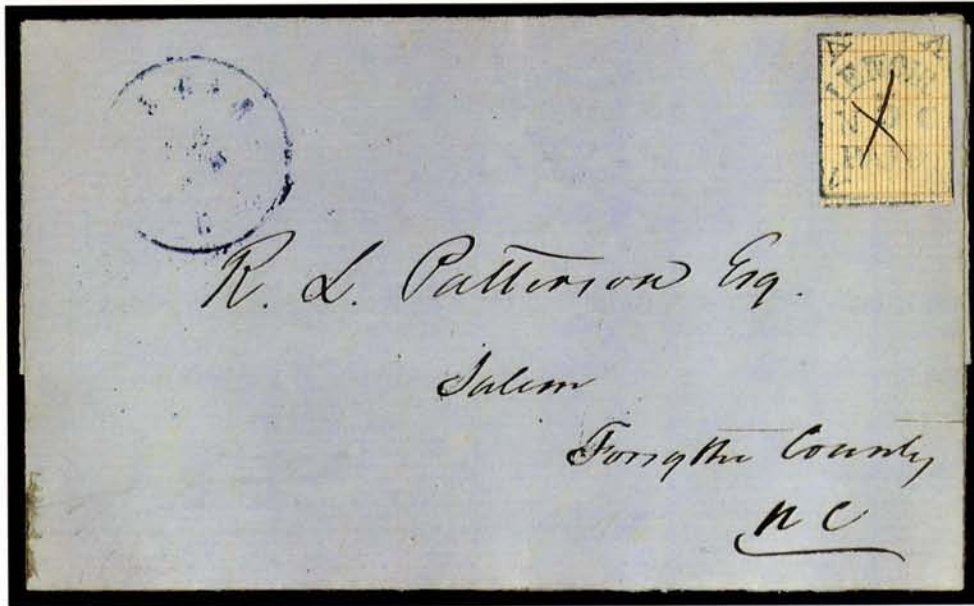 R. L. Patterson Esq.
Salem
Forsythe County
N C